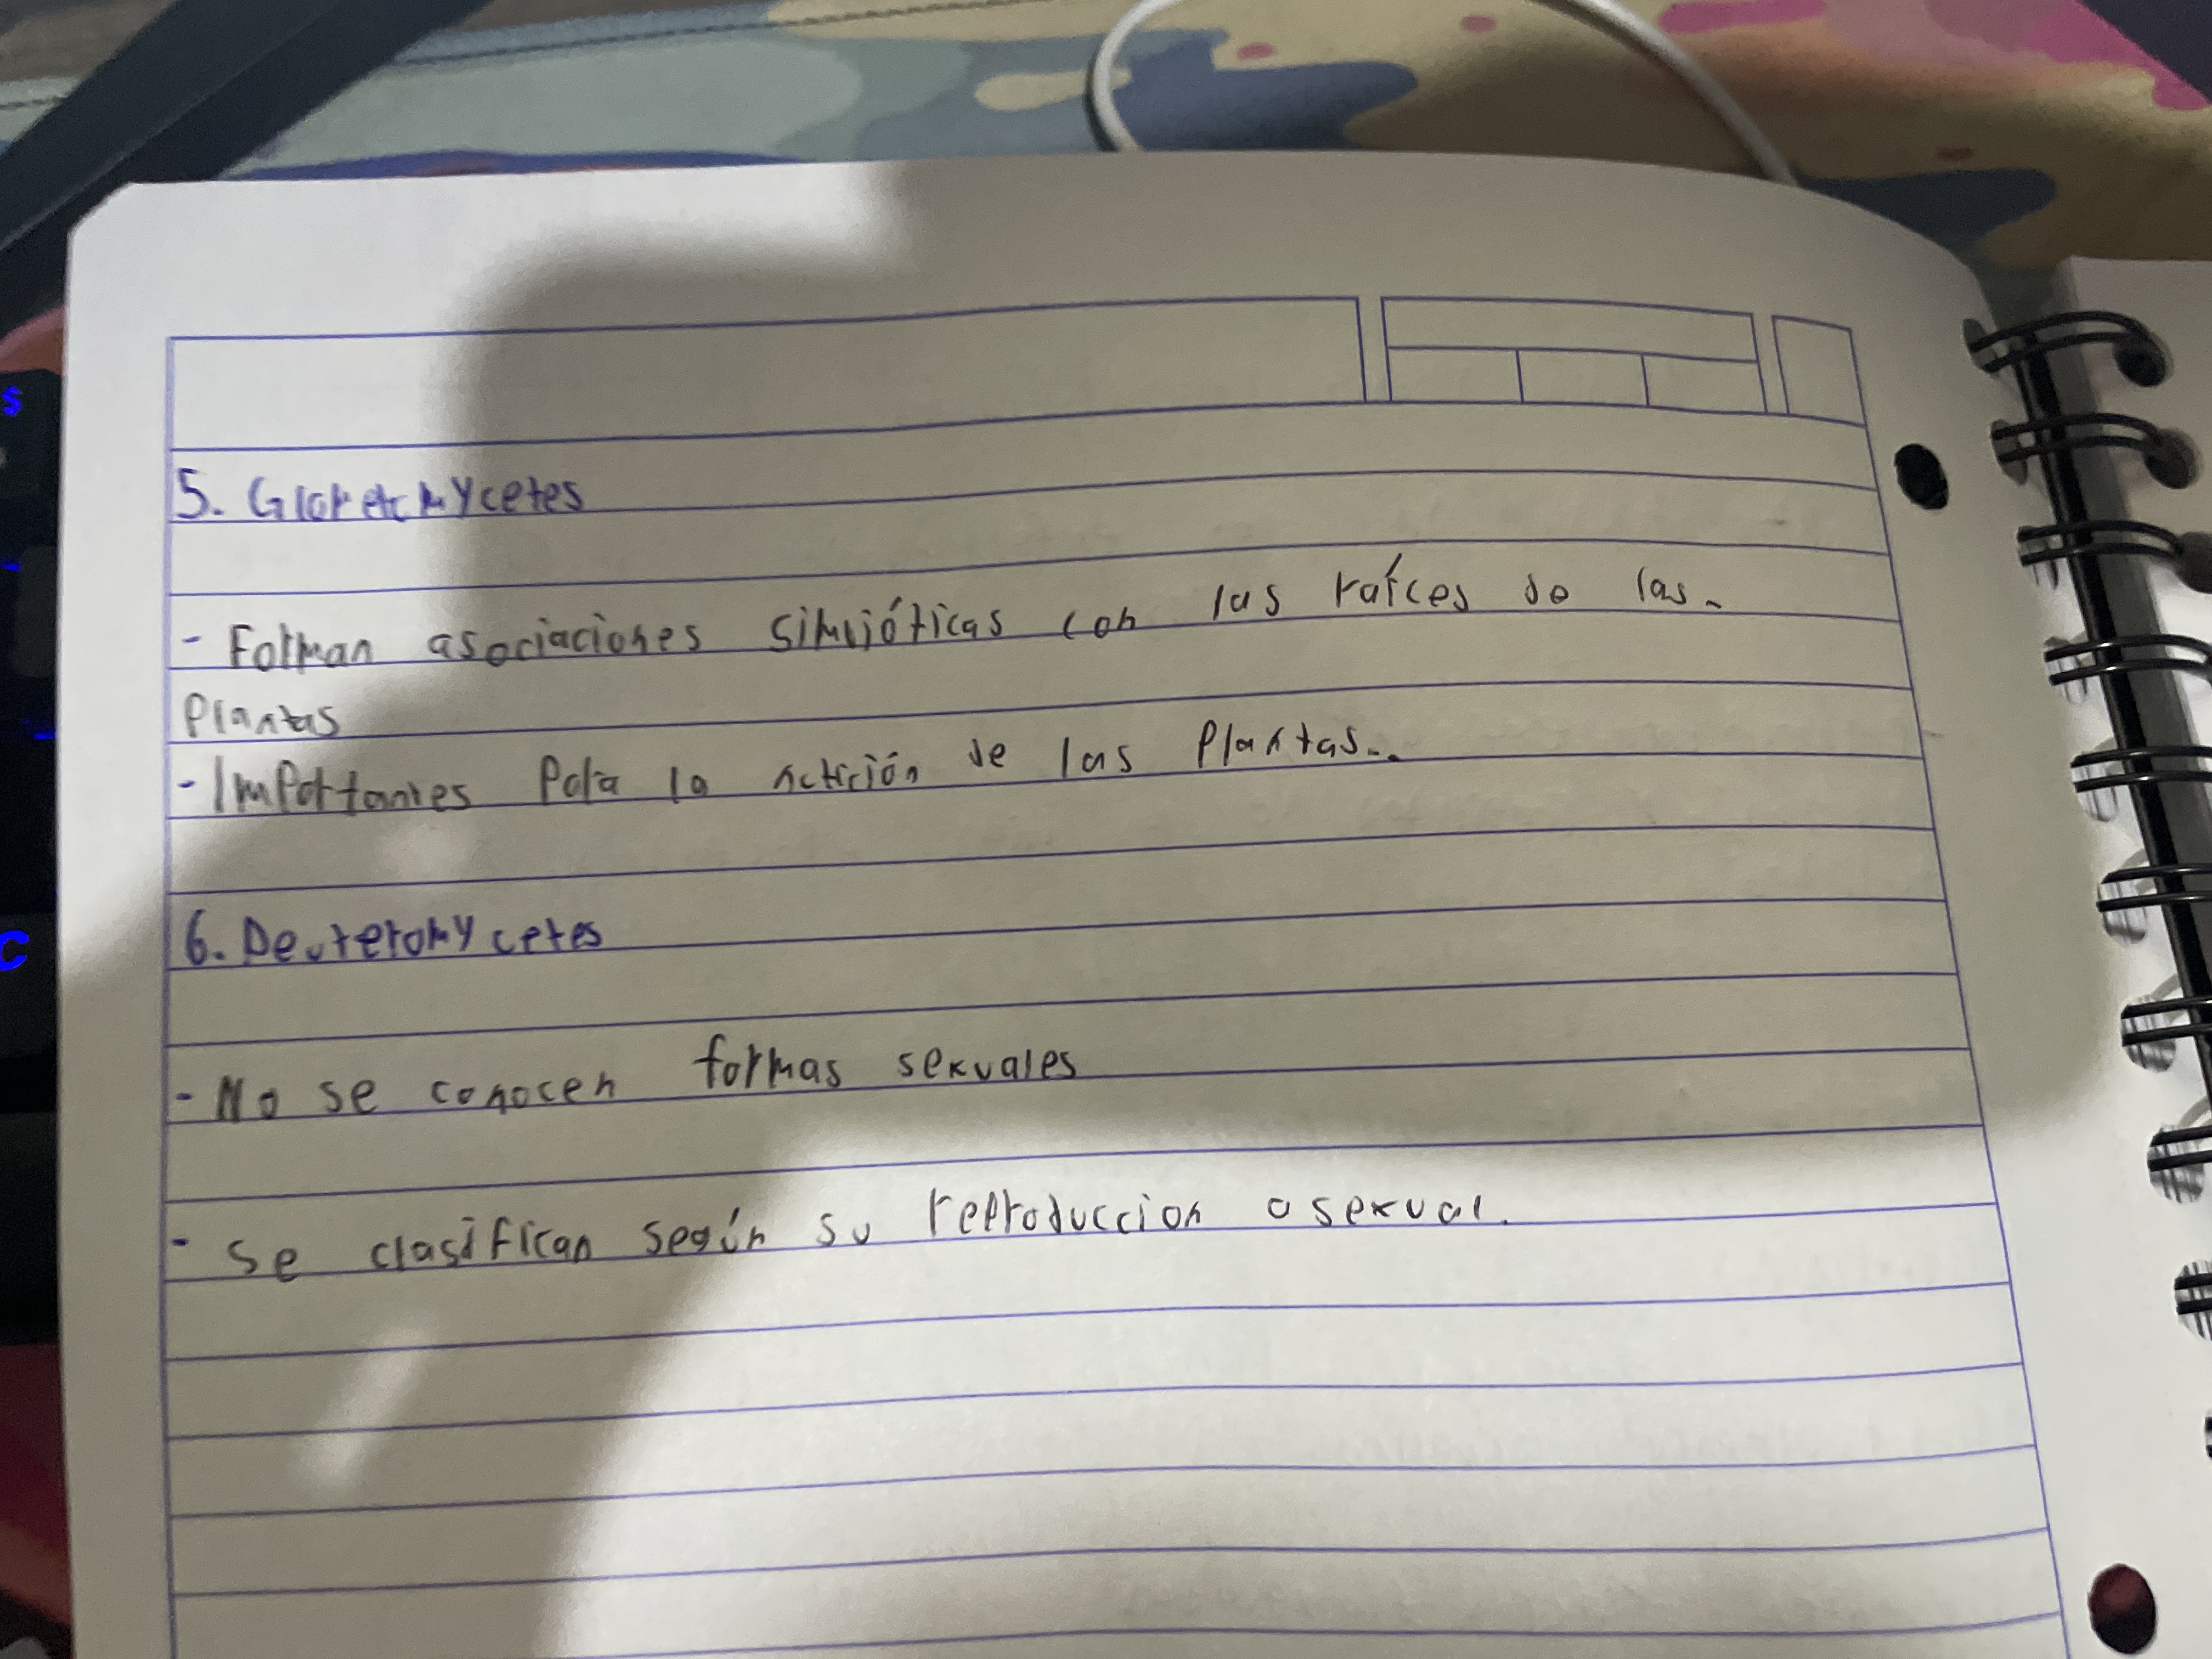 5. Glometomycetes
- Forman asociaciones simbióticas con las raíces de las.
Plantas
- Importantes Para la nutrición de las Plantas..
6. Deuteromycetes
- No se conocen formas sexuales
- Se clasifican según su reproduccion asexual.
S
C